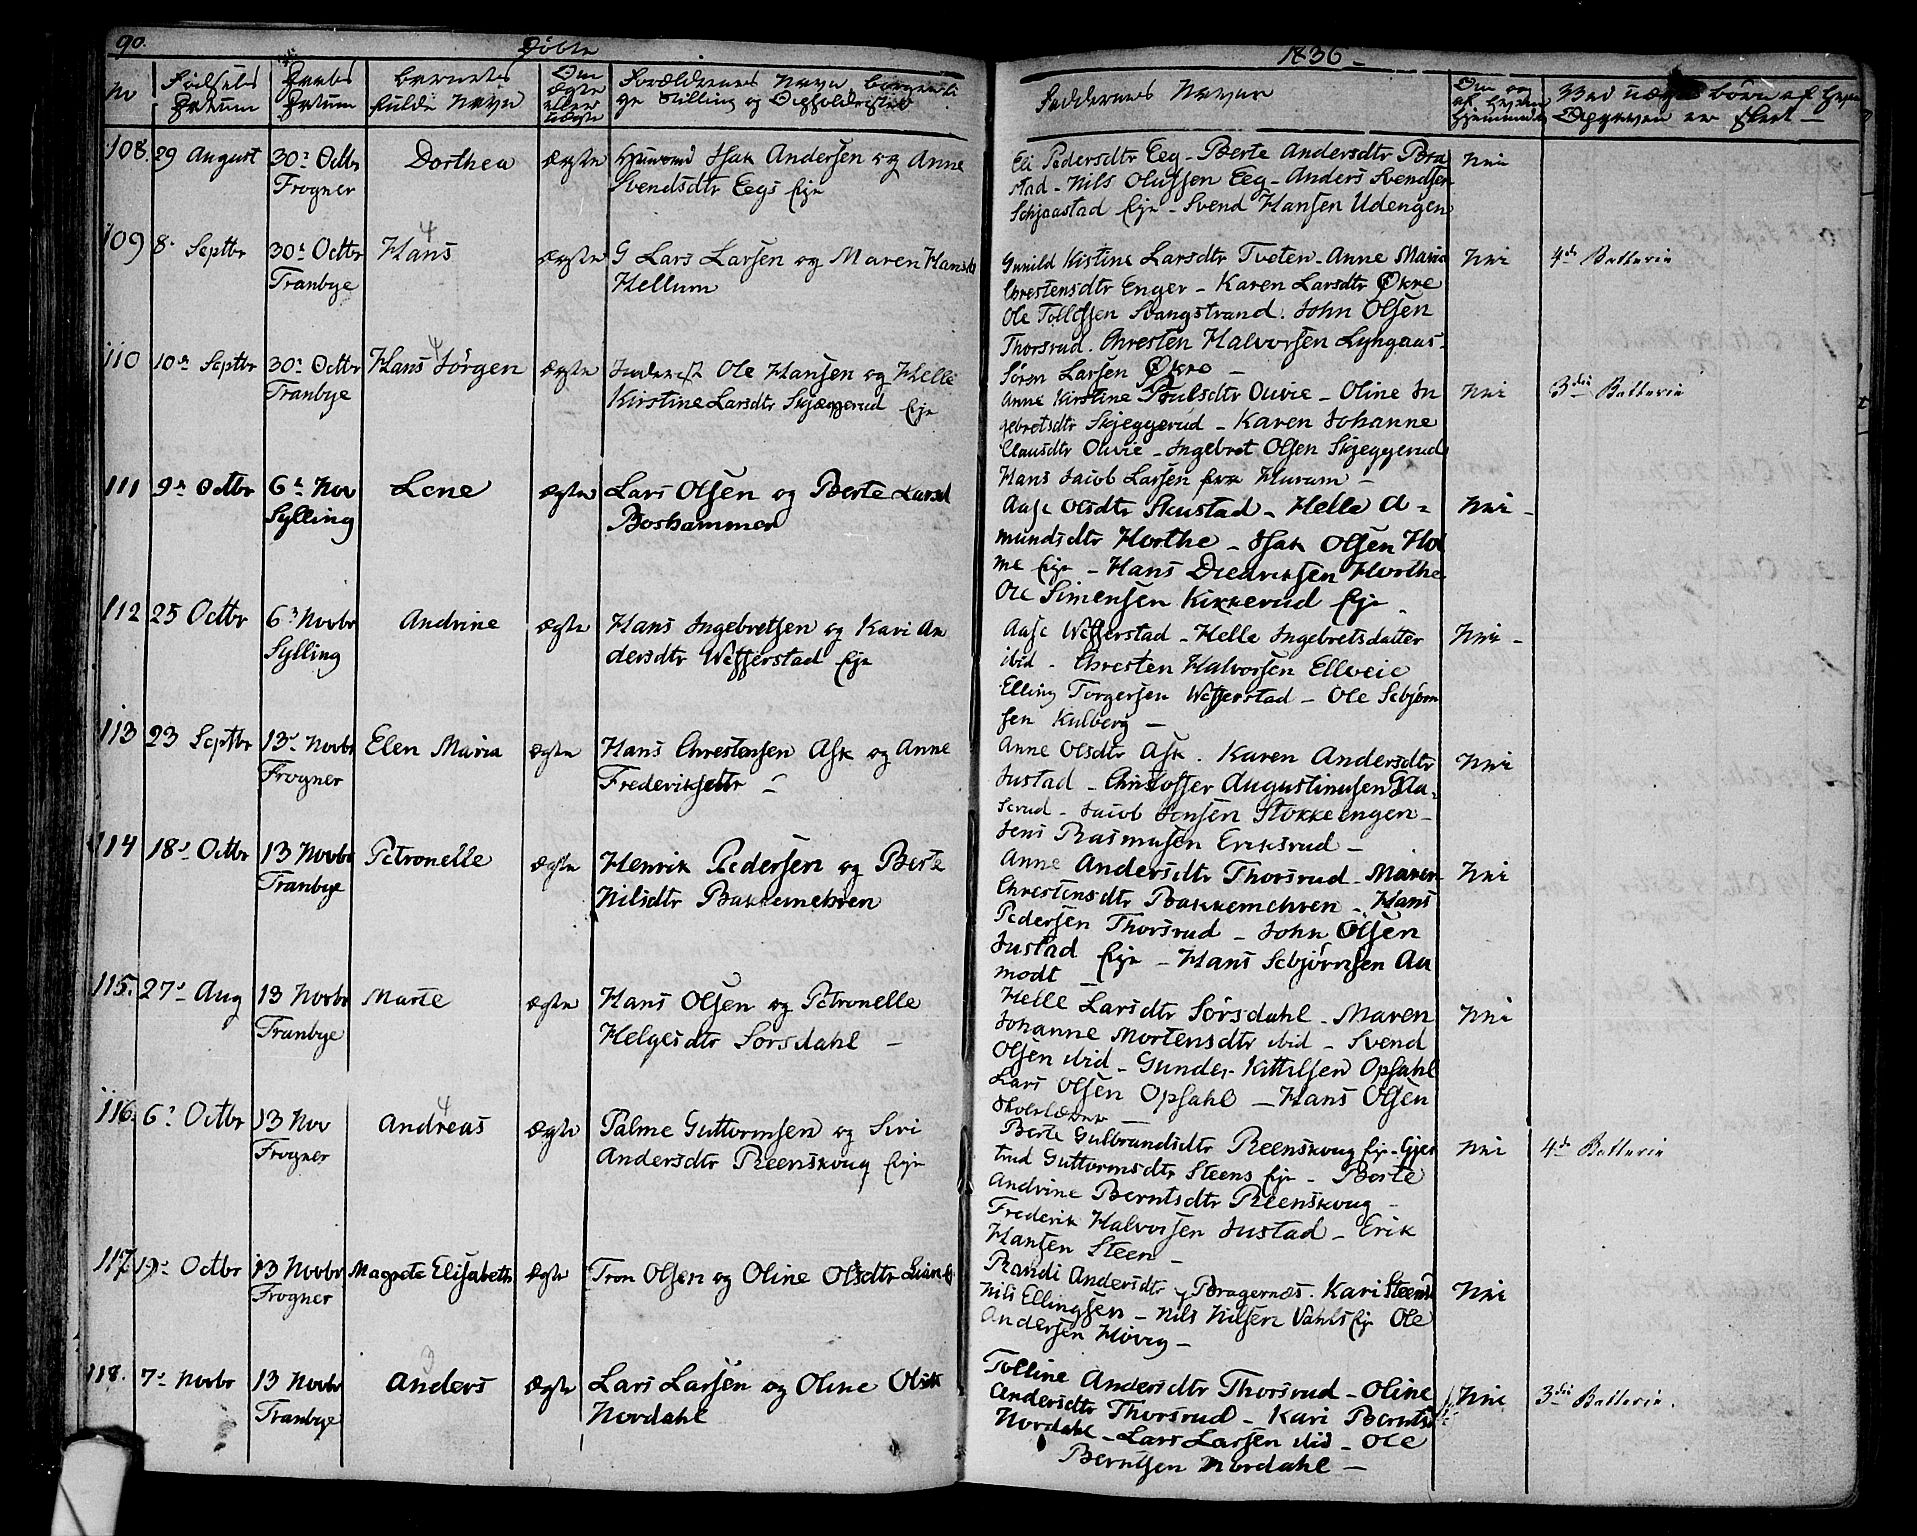 90.
Døbte
1836 -
No
Fødsels Datum
Daabs Datum
Barnets fulde Navn
Om ægte eller uægte
Forældrenes Navn, borgerlige Stilling og Opholdssted
Faddernes Navne
108. 29 August 30 Octbr Frogner
Dorthea
ægte
Isak Andersen og Anne
Svendsdtr Eegs Eje
Eli Pedersdtr Eeg - Berte Andersdtr Bra
stad - Nils Olussen Eeg - Anders Svendsen
Schjaastad Eje - Svend Hansen Udengen
Nei
109 8 Septbr 30 Octbr Tranbye
4
Hans
ægte
G Lars Larsen og Maren Hansdtr
Hellum
Gunild Kistine Larsdtr Tveten - Anne Maria
Chrestensdtr Enger - Karen Larsdtr Økre
Ole Tollefsen Svangstrand. John Olsen
Thorsrud. Chresten Halvorsen Lyngaas
Søren Larsen Økre -
Nei
4de Batterie
110 10de Septbr 30 Octbr Tranbye
4
Hans Jørgen
ægte
Ole Hansen og Helle
Kirstine Larsdtr Skjæggerud Eje
Anne Kirstine Poulsdtr Ouvie - Oline In
gebretsdtr Skjeggerud - Karen Johanne
Clausdtr Ouvie - Ingebret Olsen Skjeggerud
Hans Jacob Larsen fra Hurum -
Nei
3die Batterie
111 9de Octbr 6te Nov Sylling
Lene
ægte
Lars Olsen og Berte Larsd
Boshammer
Aase Olsdtr Skustad - Helle A=
mundsdtr Horthe - Isak Olsen Hol
me Eje - Hans Diedriksen Horthe
Ole Simensen Kikkerud Eje -
Nei -
112 25 Octbr 6 Novbr Sylling
Andrine
ægte
Hans Ingebretsen og Kari An
dersdtr Wefferstad Eje
Aase Wefferstad - Helle Ingebretsdatter
ibid - Chresten Halvorsen Ellveie
Elling Torgersen Wefferstad - Ole Sebjørn
sen Kulberg -
Nei -
113 23 Septbr 13 Novbr Frogner
Elen Maria
ægte
Hans Chrestensen Ask og Anne
Frederiksdtr -
Anne Olsdtr Ask. Karen Andersdtr
Justad - Christoffer Augustinusen Gla=
serud - Jacob Jensen Stokkeengen -
Jens Rasmusen Eriksrud -
Nei
114 18 Octbr 13 Novbr Tranbye
Petronelle
ægte
Henrik Pedersen og Berte
Nilsdtr Bakkemehren
Anne Andersdtr Thorsrud - Maren
Chrestensdtr Bakkemehren - Hans
Pedersen Thorsrud - John Olsen
Justad Eje - Hans Sebjørnsen Aa
modt -
Nei
115. 27 Aug 13 Novbr Tranbye
Marte
ægte
Hans Olsen og Petronelle
Helgesdtr Sørsdahl -
Helle Larsdtr Sørsdahl - Maren
Johanne Mortensdtr ibid - Svend
Olsen ibid - Gunder Kittilsen Opsahl
Lars Olsen Opsahl - Hans Olsen
Skolelærer
Nei
116. 6 Octbr 13 Nov Frogner
4
Andreas
Ægte
Palme Guttormsen og Siri
Andersdtr Reenskoug Eje
Berte Gulbrandsdtr Reenskoug Eje - Gjer
trud Guttormsdtr Steens Eje - Berte
Andrine Berntsdtr Reenskoug -
Frederik Halvorsen Justad - Erik
Hansen Steen -
Nei
4de Batterie
117 19 Octbr 13 Novbr Frogner
Magrete Elisabeth
Ægte
Tron Olsen og Oline Olsdtr
Randi Andersdtr Bragernæs. Kari Steens
Nils Ellingsen - Nils Nilsen Vahls Eje Ole
Andersen Høvig -
Nei
118. 7 Novbr 13 Novbr Tranbye
3
Anders
Ægte
Lars Larsen og Oline Olsdtr
Nordahl
Tolline Andersdtr Thorsrud - Oline
Andersdtr Thorsrud - Kari Berntsd
Nordahl - Lars Larsen ibid - Ole
Berntsen Nordahl -
Nei
3die Batterie.